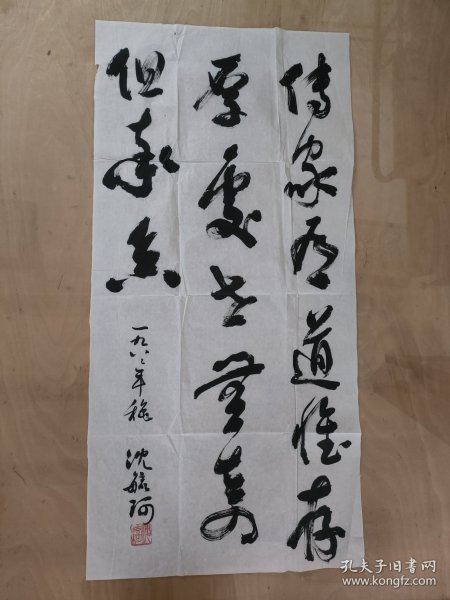 傳家有道惟存
厚處世無奇
但率真
一九八二年秋 沈毓
孔夫子旧书网
www.kongfz.com